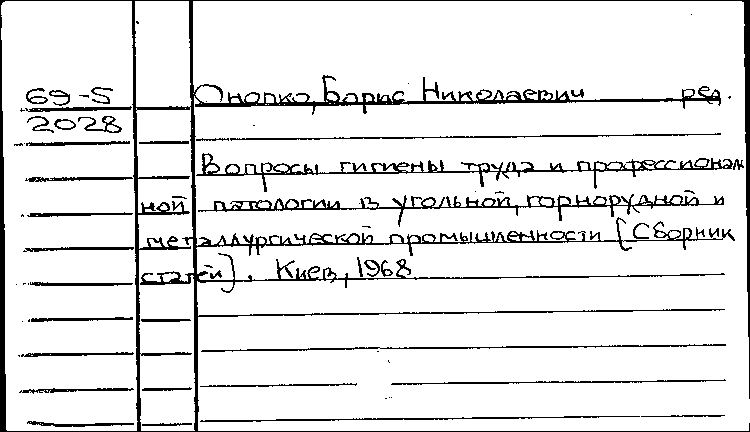 69-5 Онопко, Борис Николаевич ред.
2028
Вопросы гигиены труда и профессиональ
ной патологии в угольной, горнорудной и
металлургической промышленности [Сборник
статей]. Киев, 1968